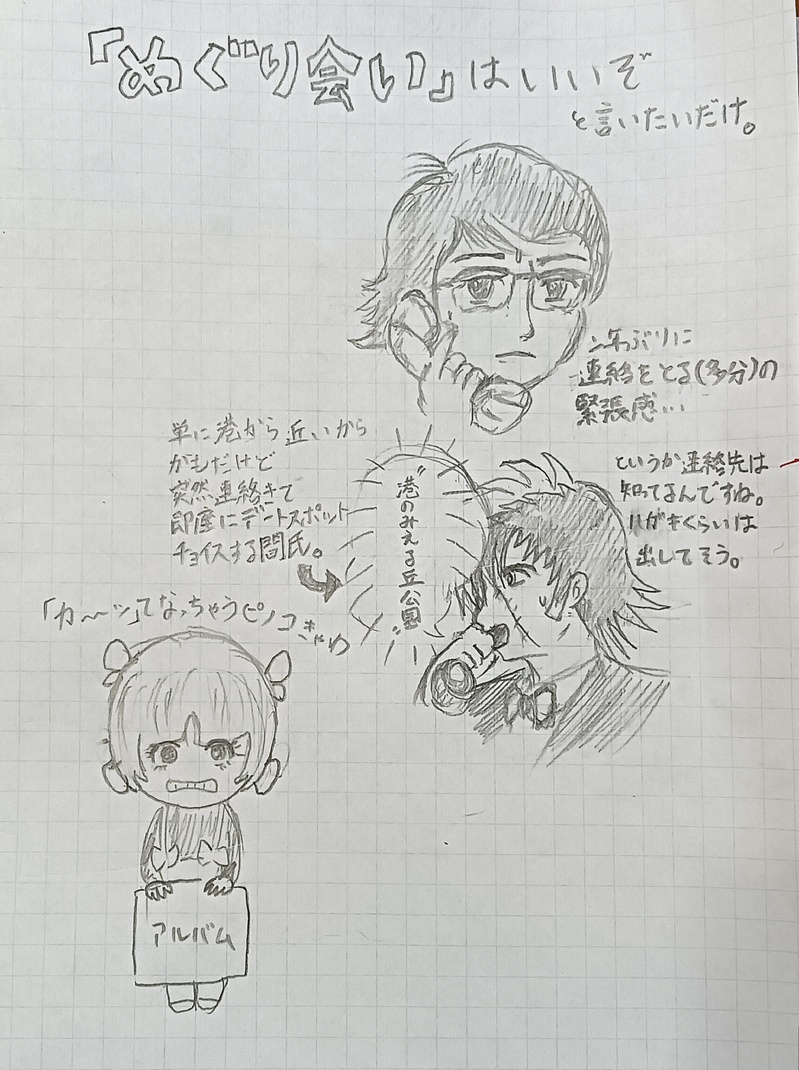 『めぐり会い』はいいぞ
と言いたいだけ。
年ぶりに
連絡をとる(多分)の
緊張感…
というか連絡先は
知ってるんですね。
ハガキくらいは
出してそう。
単に港から近いから
かもだけど
突然連絡きて
即座にデートスポット
チョイスする間氏。
"港のみえる丘公園"
「カ〜〜ッ」てなっちゃうピノコ
きゃわ
アルバム